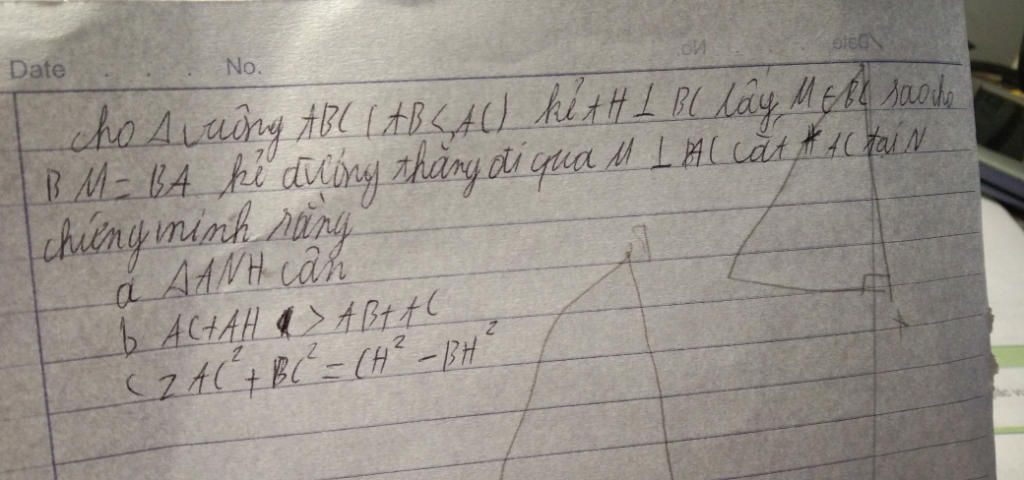 Date No.
cho Δ vuông ABC (AB<AC) kẻ AH ⊥ BC lấy M ∈ BC sao cho
BM = BA kẻ đường thẳng đi qua M ⊥ AC cắt AC tại N
chứng minh rằng
a ΔANH cân
b AC+AH > AB+AC
c 2AC² + BC² = CH² - BH²